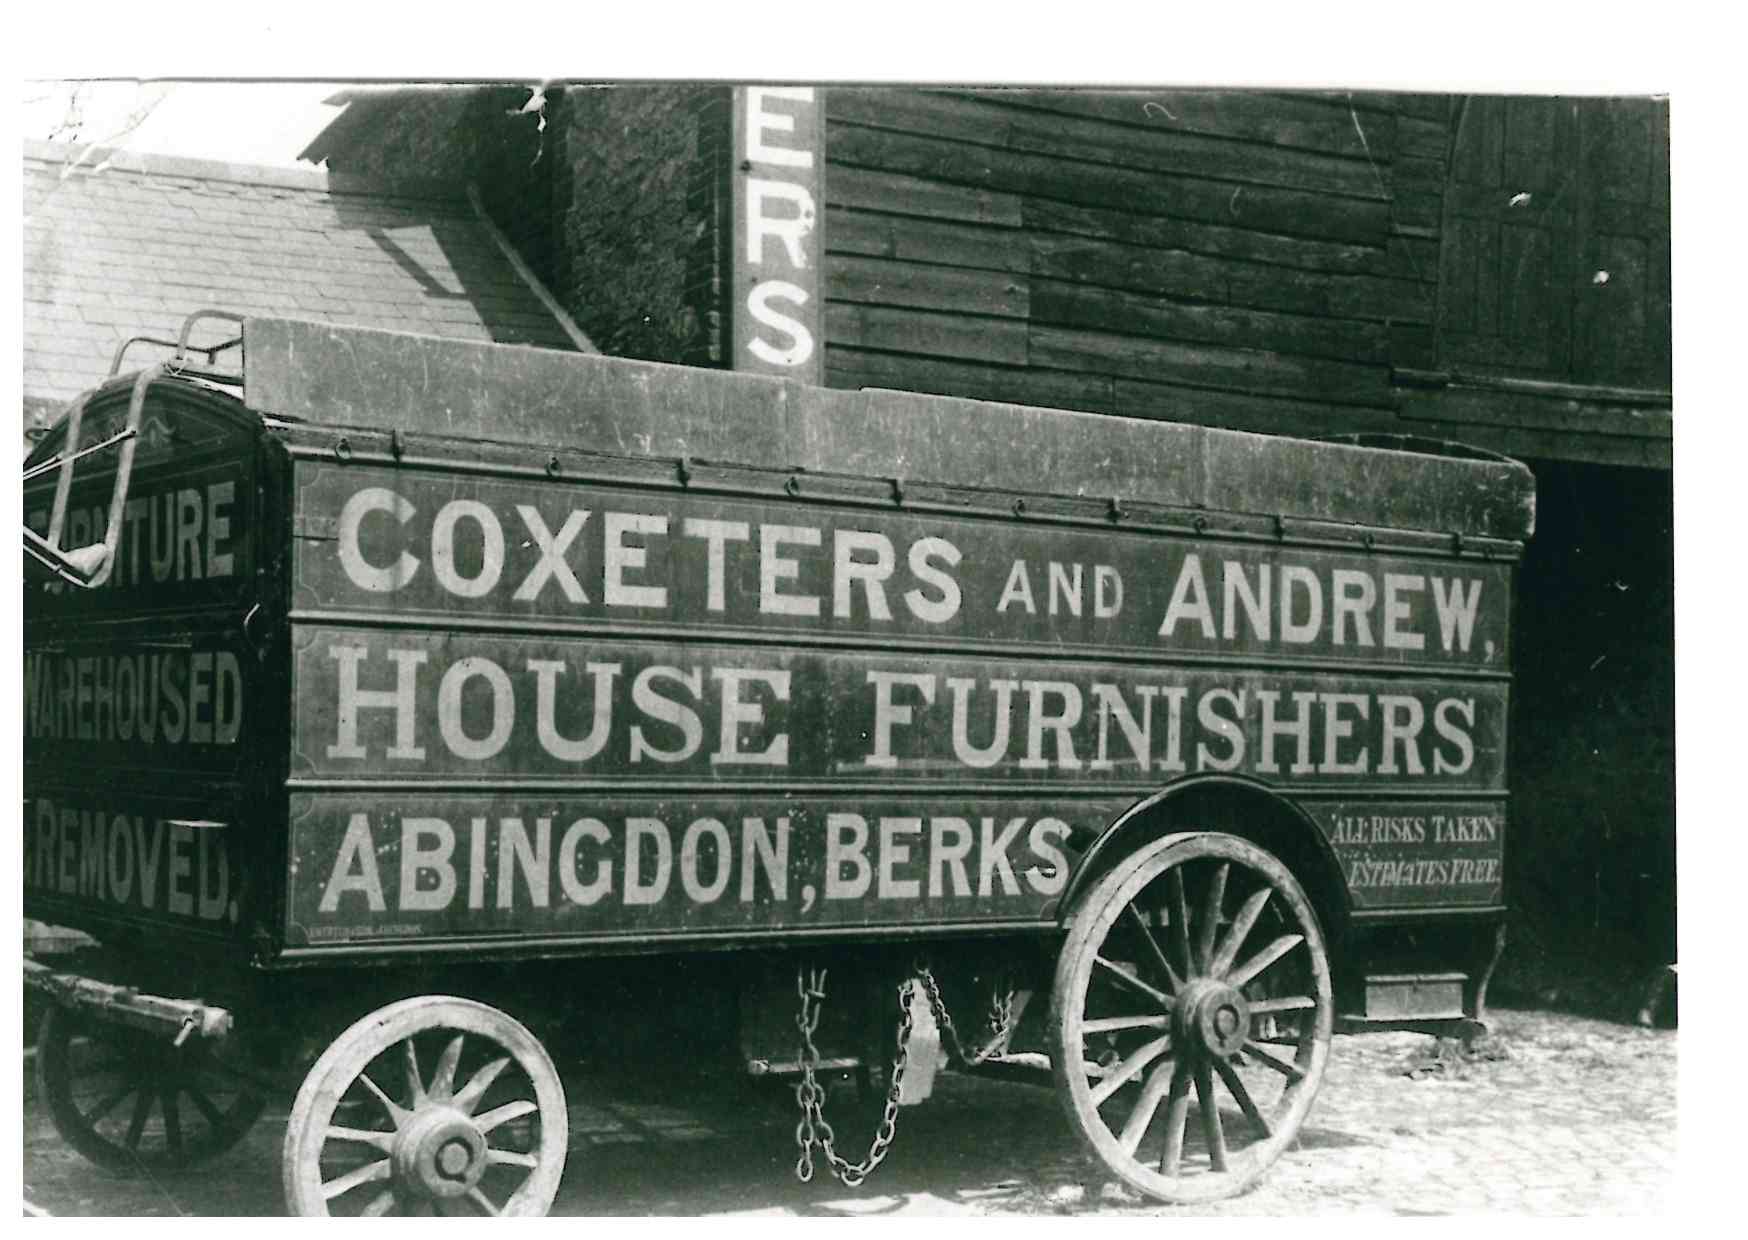 ERS
FURNITURE
WAREHOUSED
REMOVED.
COXETERS AND ANDREW,
HOUSE FURNISHERS
ABINGDON, BERKS
ALL RISKS TAKEN
ESTIMATES FREE.